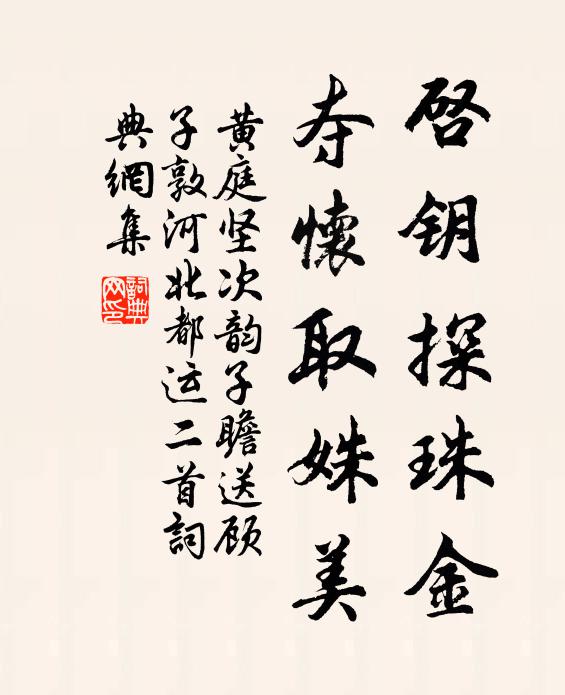 启钥探珠金
夺怀取姝美
黄庭坚次韵子瞻送顾
子敦河北都运二首詞
典網集
詞典
网印